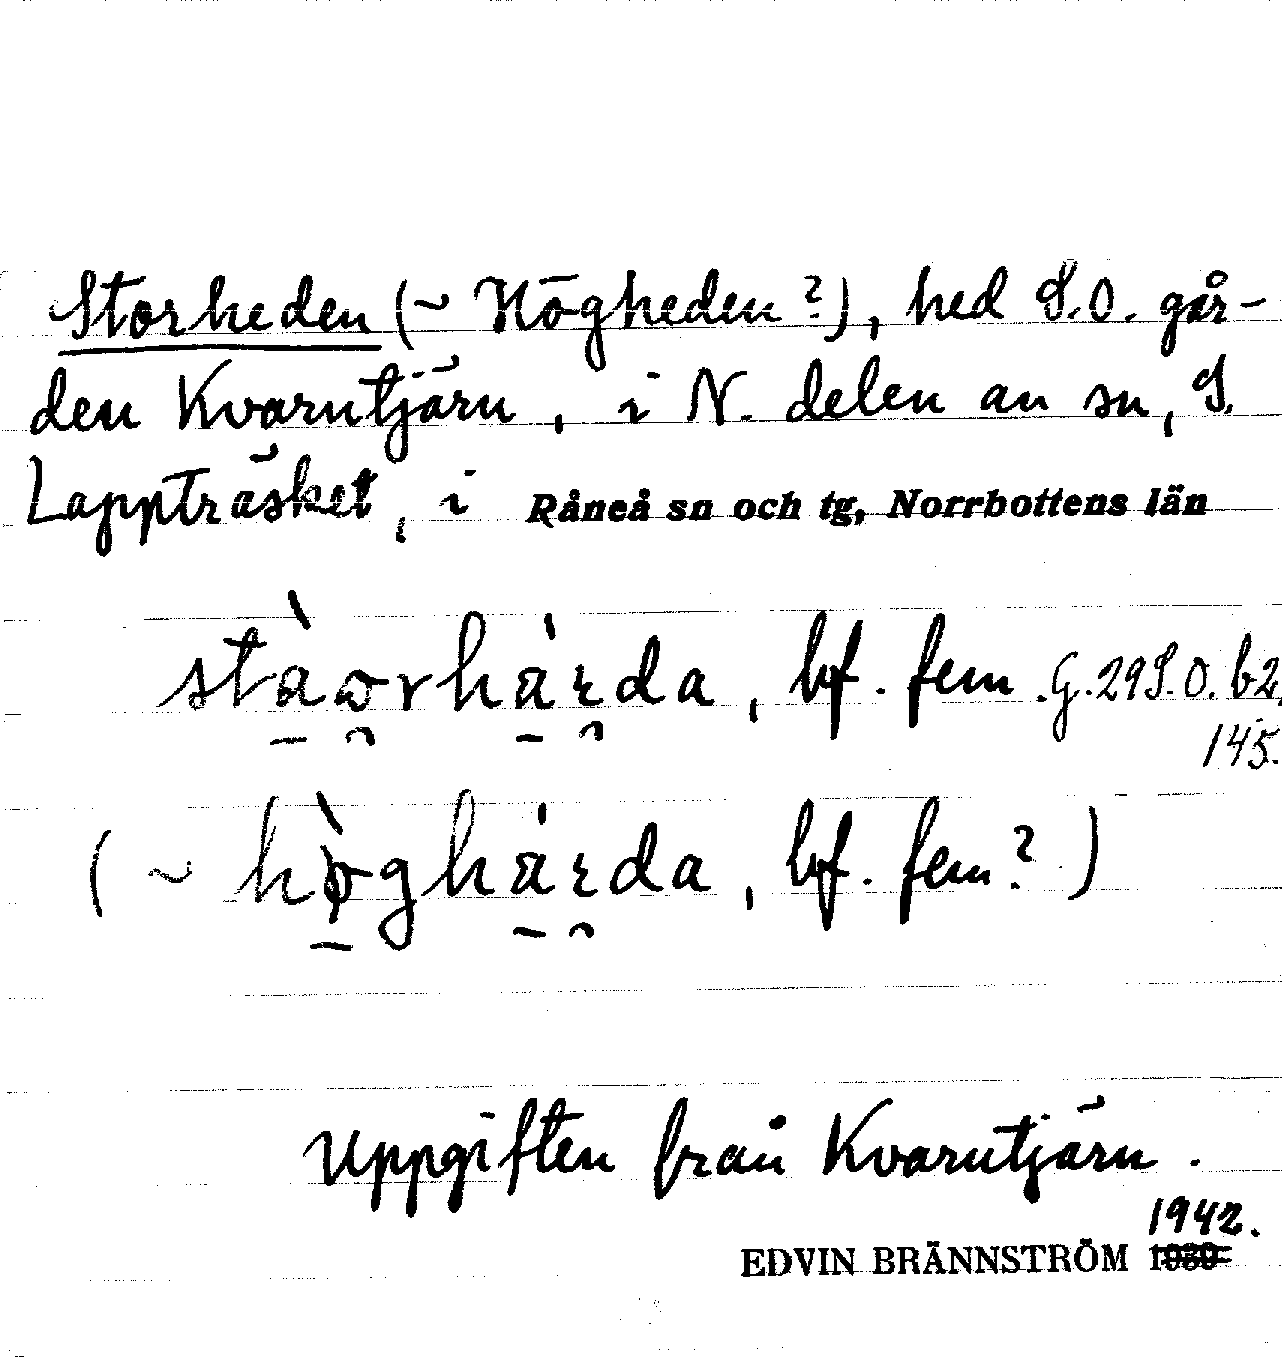 Storheden (~ Högheden?), hed S.O. går-
den Kvarntjärn, i N. delen av sn, S.
Lappträsket, i Råneå sn och tg, Norrbottens län
stàorhàrda, bf. fem. G.29S.O. b2,
145.
(~ hòghàrda, bf. fem?)
Uppgiften från Kvarntjärn.
1942.
EDVIN BRÄNNSTRÖM 1939